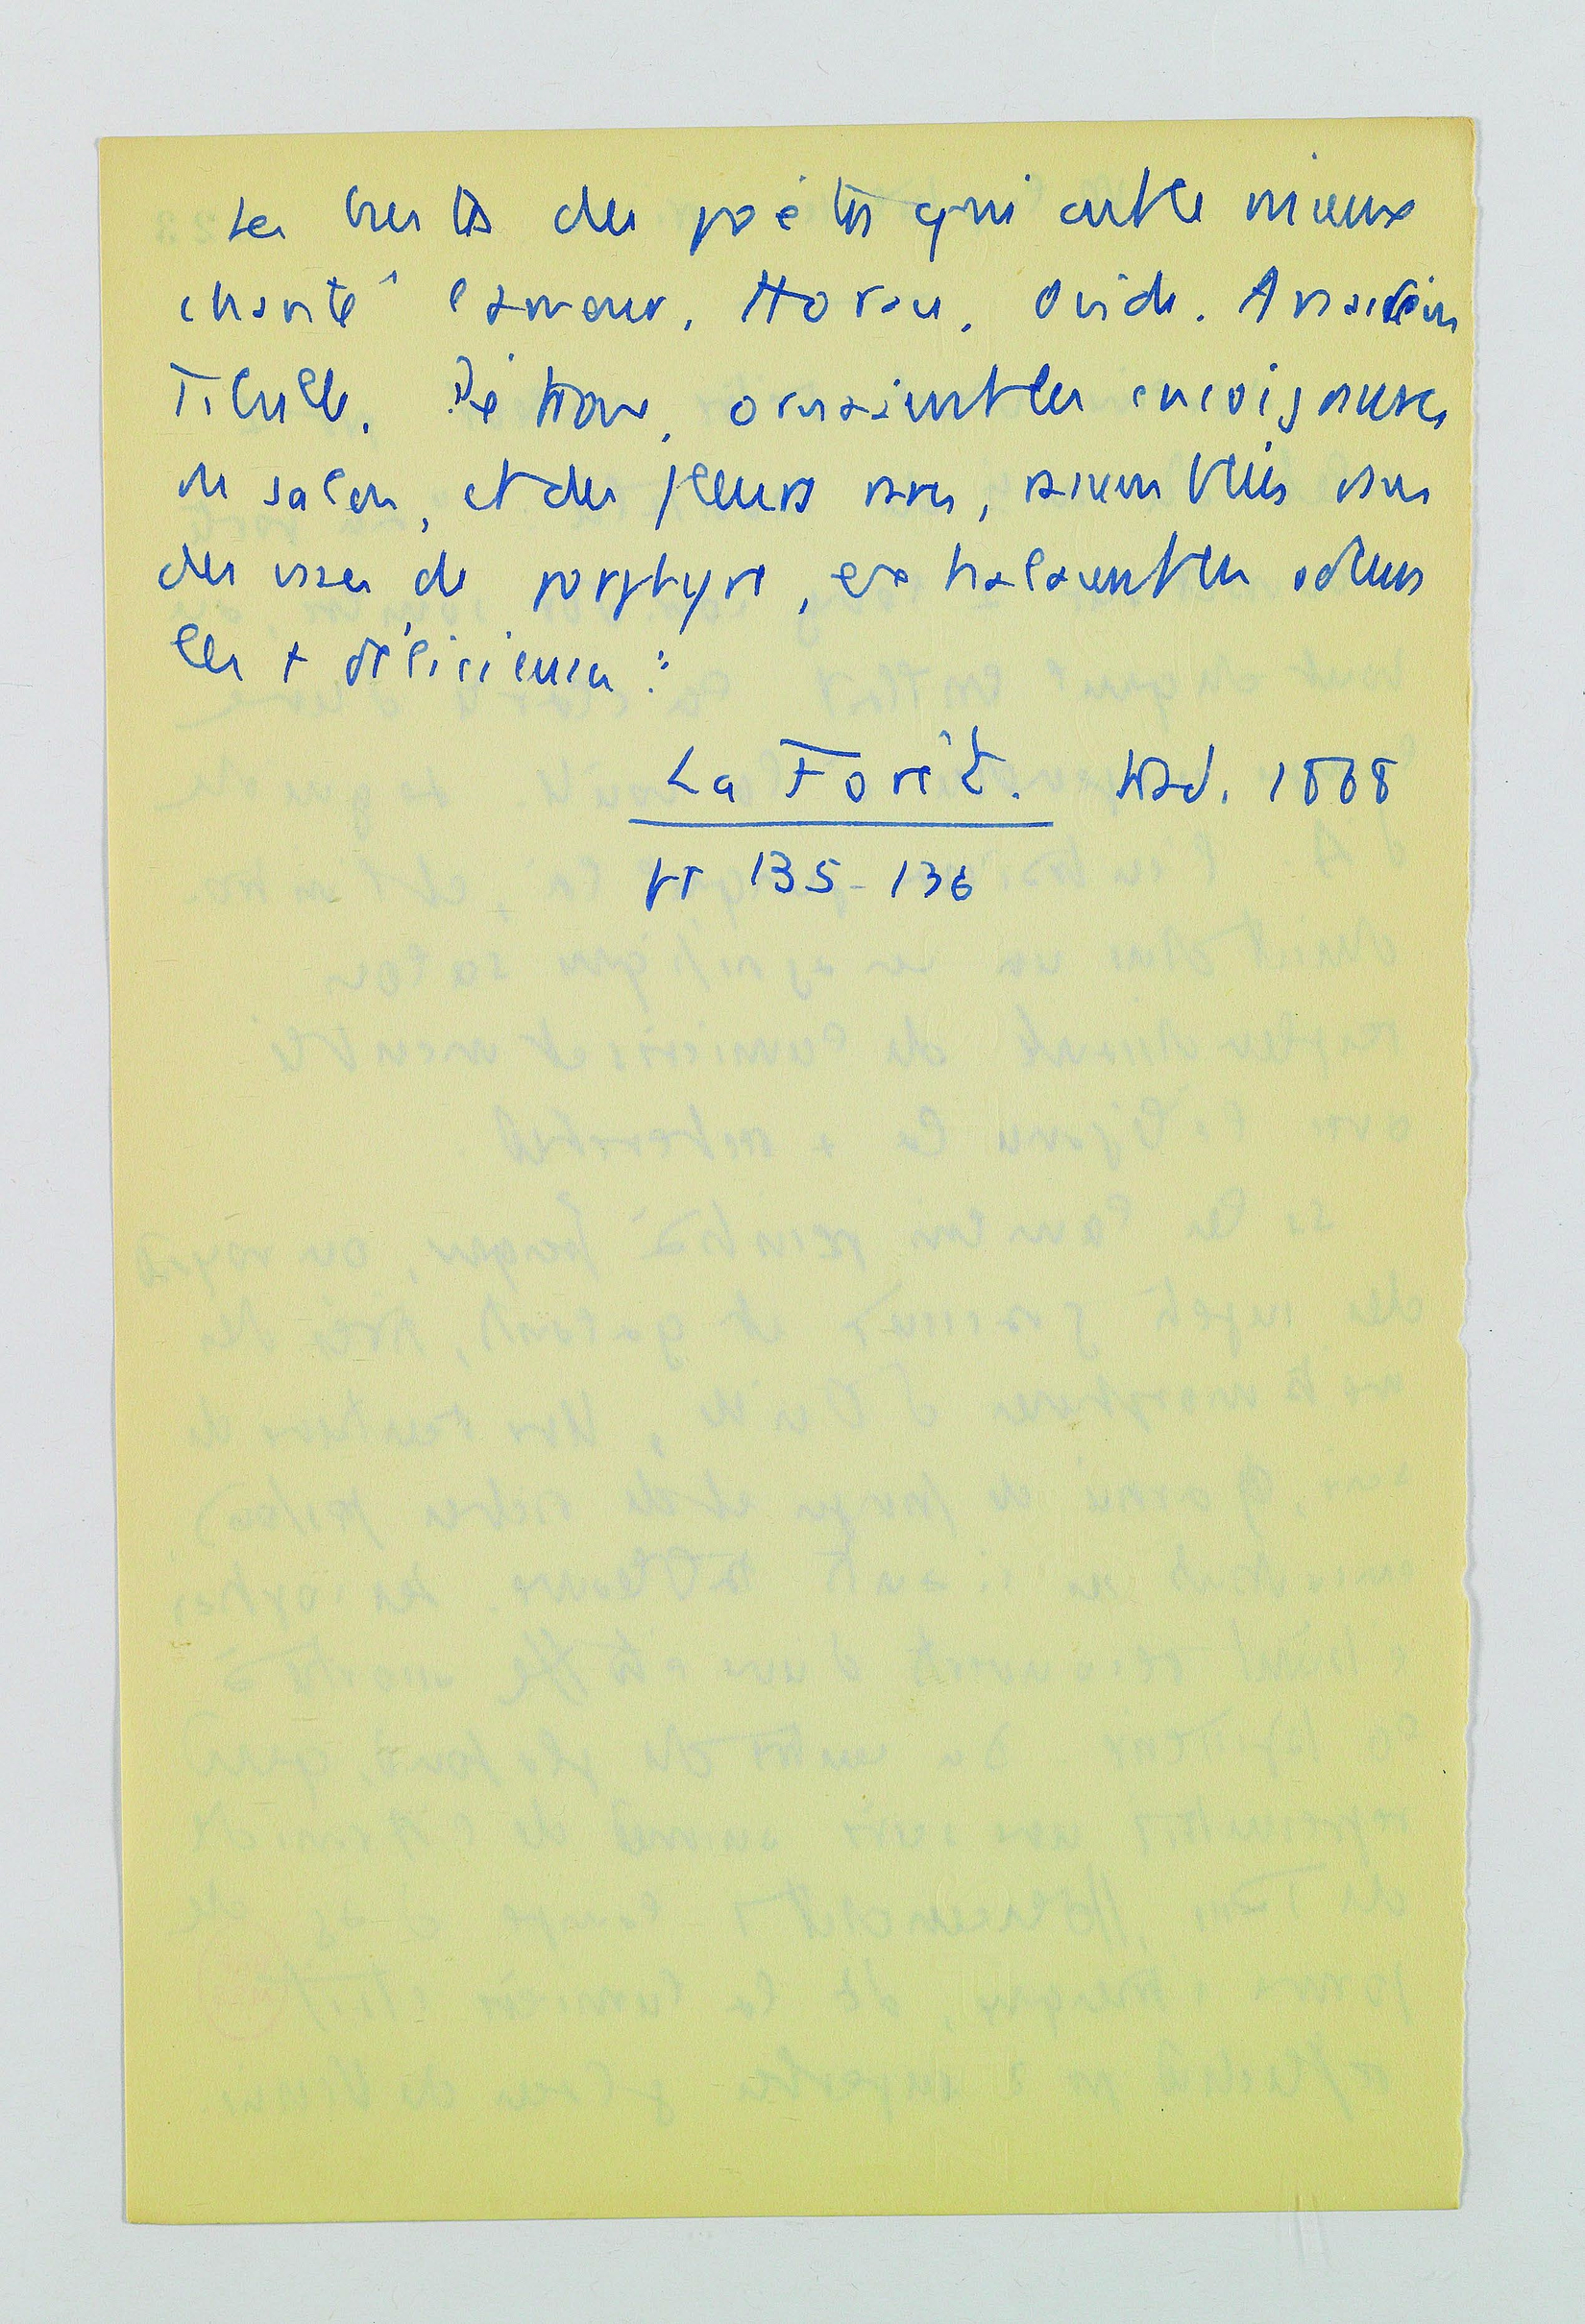 Les bustes des poètes qui ont le mieux
chanté l'amour, Horace, Ovide, Anacréon
Tibulle, Pétrone, ornaient les encoignures
du salon, et des fleurs rares, dans
des vases de porphyre, exhalaient les odeurs
les + délicieuses :
La Forêt. trad. 1868
pp 135-136